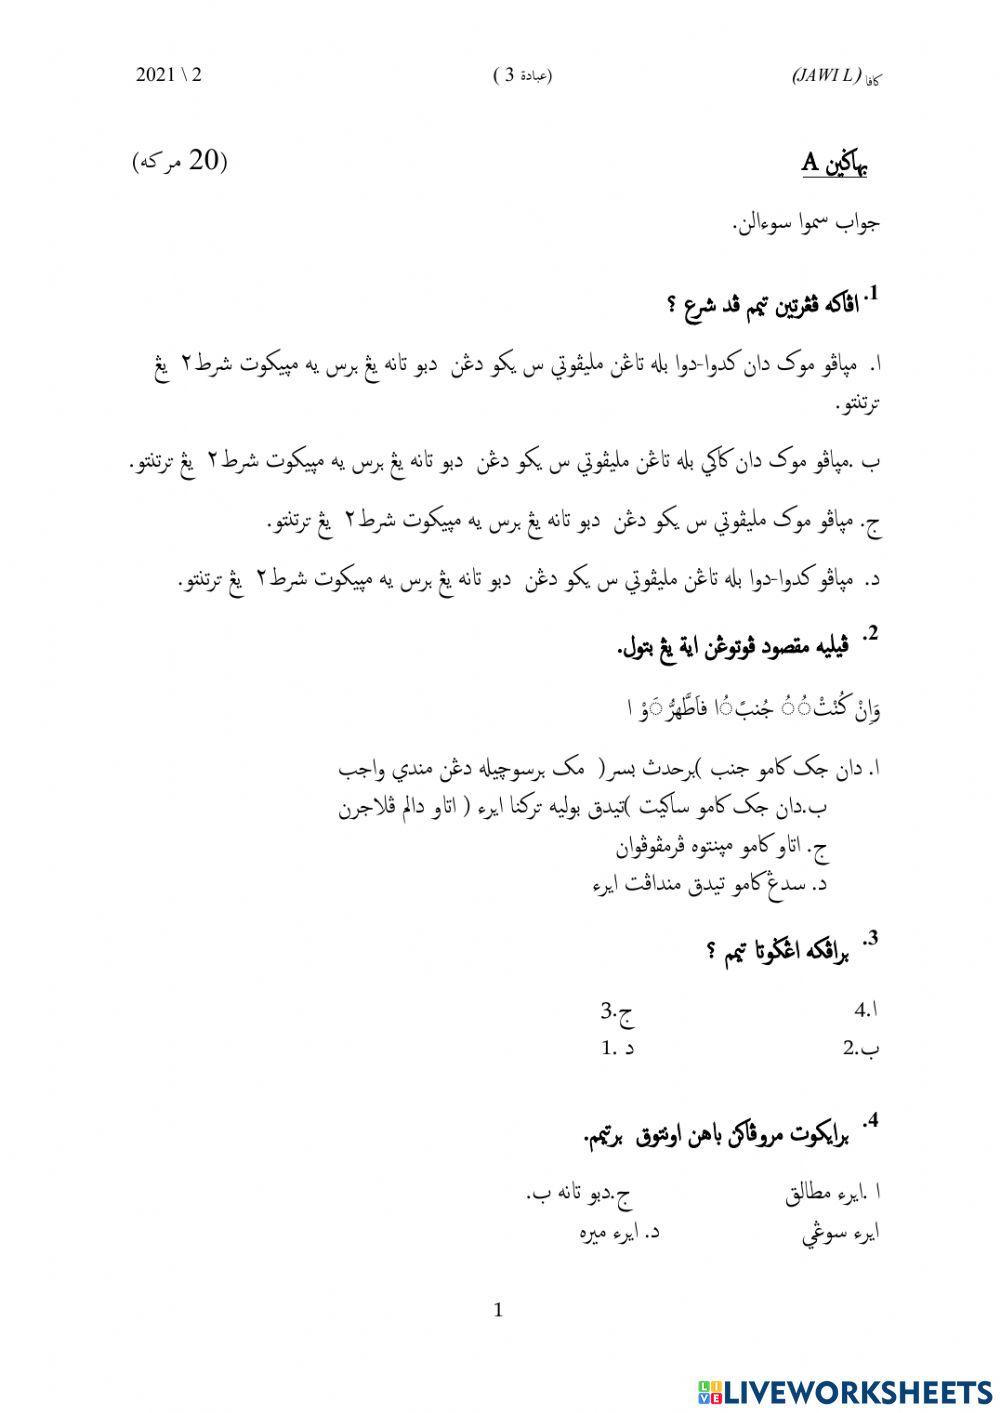 كافا (JAWI L) (عبادة 3 ) 2021 \ 2
بهاݢين A (20 مركه)
جواب سموا سوءالن.
1. اڤاکه ڤڠرتين تيمم ڤد شرع ؟
ا. مپاڤو موک دان کدوا-دوا بله تاڠن مليڤوتي س يکو دڠن دبو تانه يڠ برس يه مڽيکوت شرط٢ يڠ
ترتنتو.
ب .مپاڤو موک دان کاکي بله تاڠن مليڤوتي س يکو دڠن دبو تانه يڠ برس يه مڽيکوت شرط٢ يڠ ترتنتو.
ج. مپاڤو موک مليڤوتي س يکو دڠن دبو تانه يڠ برس يه مڽيکوت شرط٢ يڠ ترتنتو.
د. مپاڤو کدوا-دوا بله تاڠن مليڤوتي س يکو دڠن دبو تانه يڠ برس يه مڽيکوت شرط٢ يڠ ترتنتو.
2. ڤيليه مقصود ڤوتوڠن اية يڠ بتول.
وَاِنْ كُنْتْ ُ ُ جُنبً ُا فاَطَّهرُّ َوْ ا
ا. دان جک کامو جنب )برحدث بسر( مک برسوچيله دڠن مندي واجب
ب.دان جک کامو ساکيت )تيدق بوليه ترکنا ايرء ( اتاو دالم ڤلاجرن
ج. اتاو کامو مپنتوه ڤرمڤوڤوان
د. سدڠ کامو تيدق منداڤت ايرء
3. براڤکه اڠݢوتا تيمم ؟
ا.4 ج.3
ب.2 د .1
4. برايکوت مروڤاکن باهن اونتوق برتيمم.
ا .ايرء مطالق ج.دبو تانه ب.
ايرء سوڠي د. ايرء ميره
1
LIVE LIVEWORKSHEETS